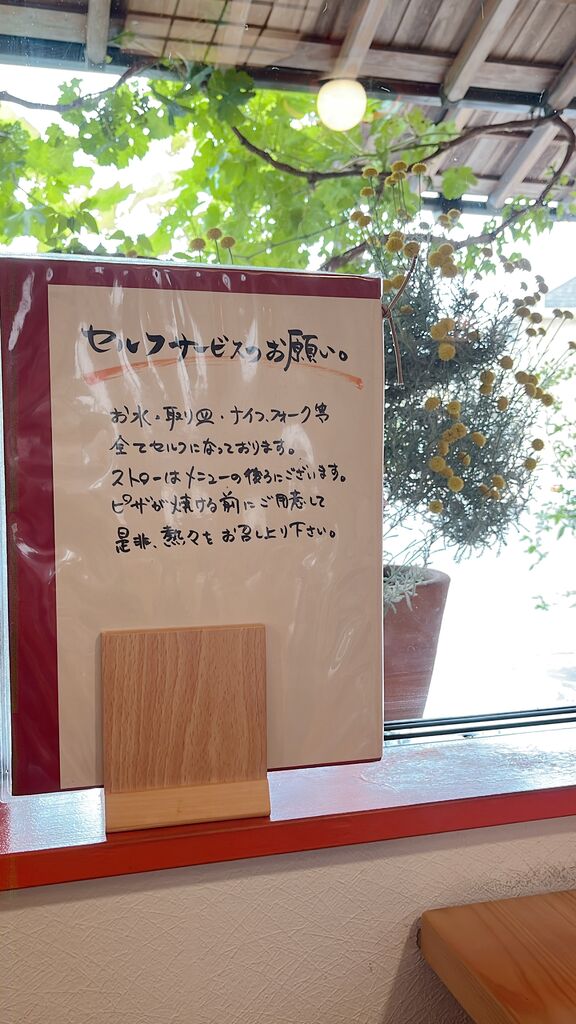 セルフサービスのお願い。
お水・取り皿・ナイフ、フォーク等
全てセルフになっております。
ストローはメニューの後ろにございます。
ピザが焼ける前にご用意して
是非、熱々をお召し上り下さい。